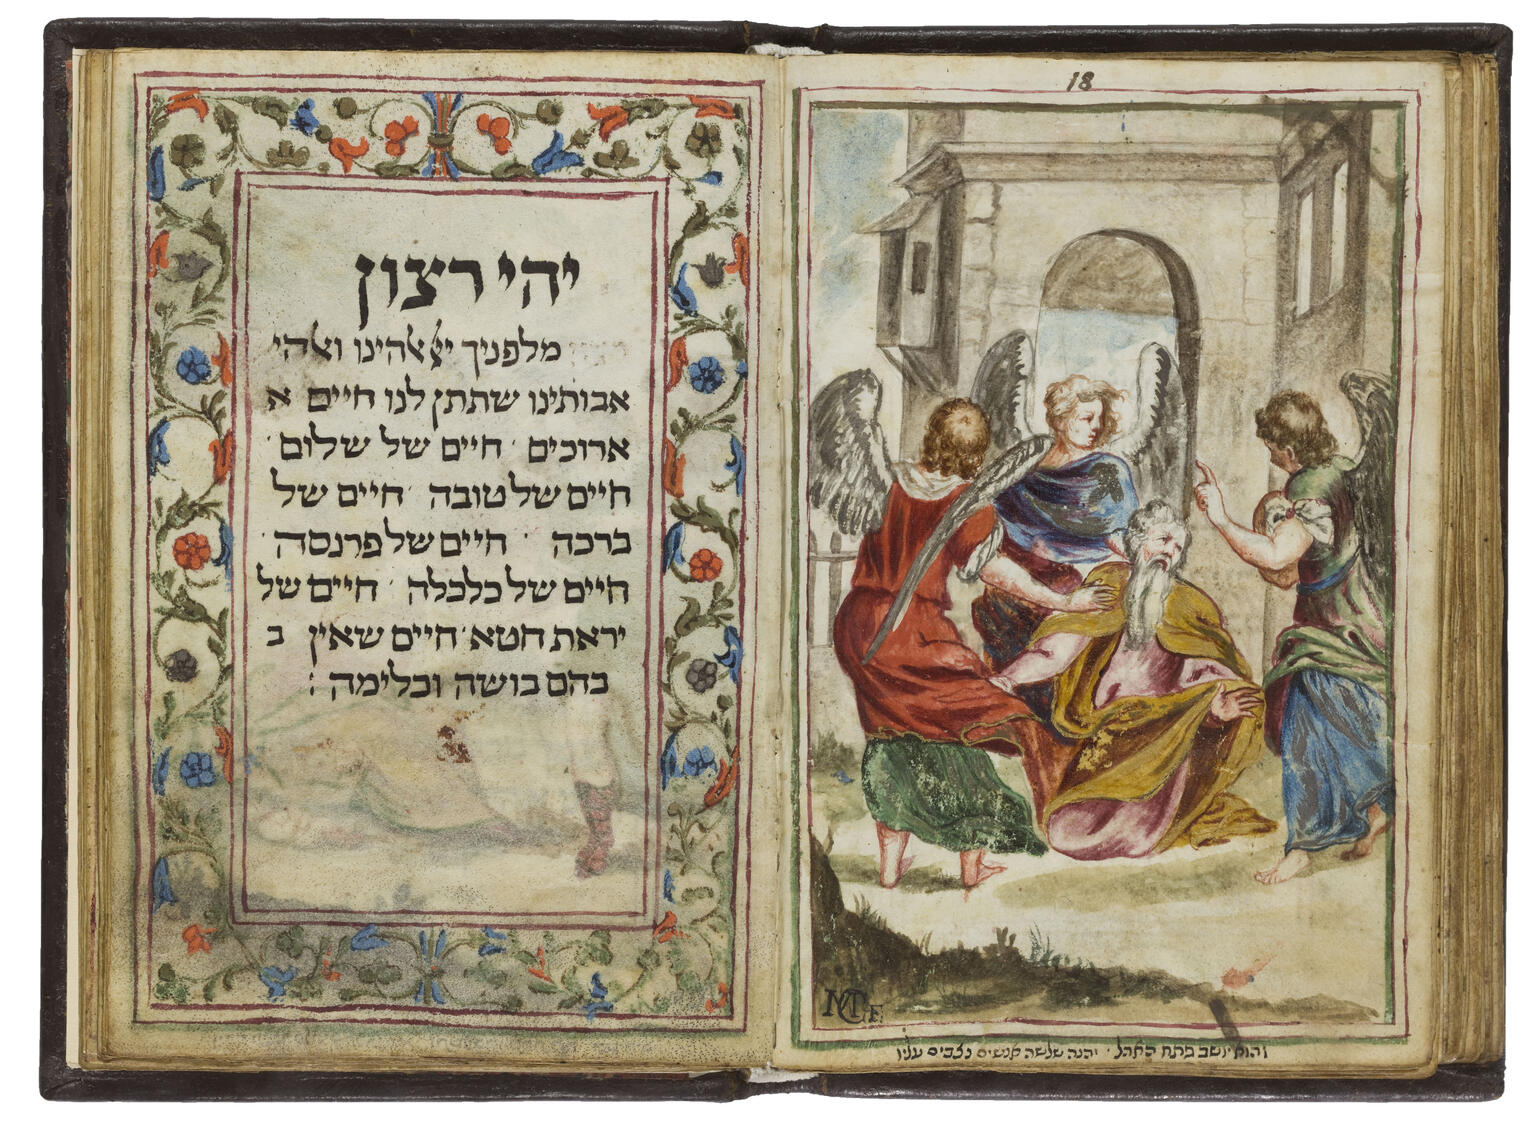 18
MCT F.
והוא יושב פתח האהל · והנה שלשה אנשים נצבים עליו
יהי רצון
מלפניך יﭏהינו וﭏהי
אבותינו שתתן לנו חיים א
ארוכים ׳ חיים של שלום ׳
חיים של טובה ׳ חיים של
ברכה ׳ חיים של פרנסה ׳
חיים של כלכלה ׳ חיים של
יראת חטא ׳ חיים שאין ב
בהם בושה וכלימה :